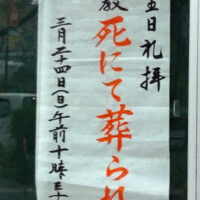 五日礼拝
教 死にて葬られ
三月二十四日(日)午前十時三十